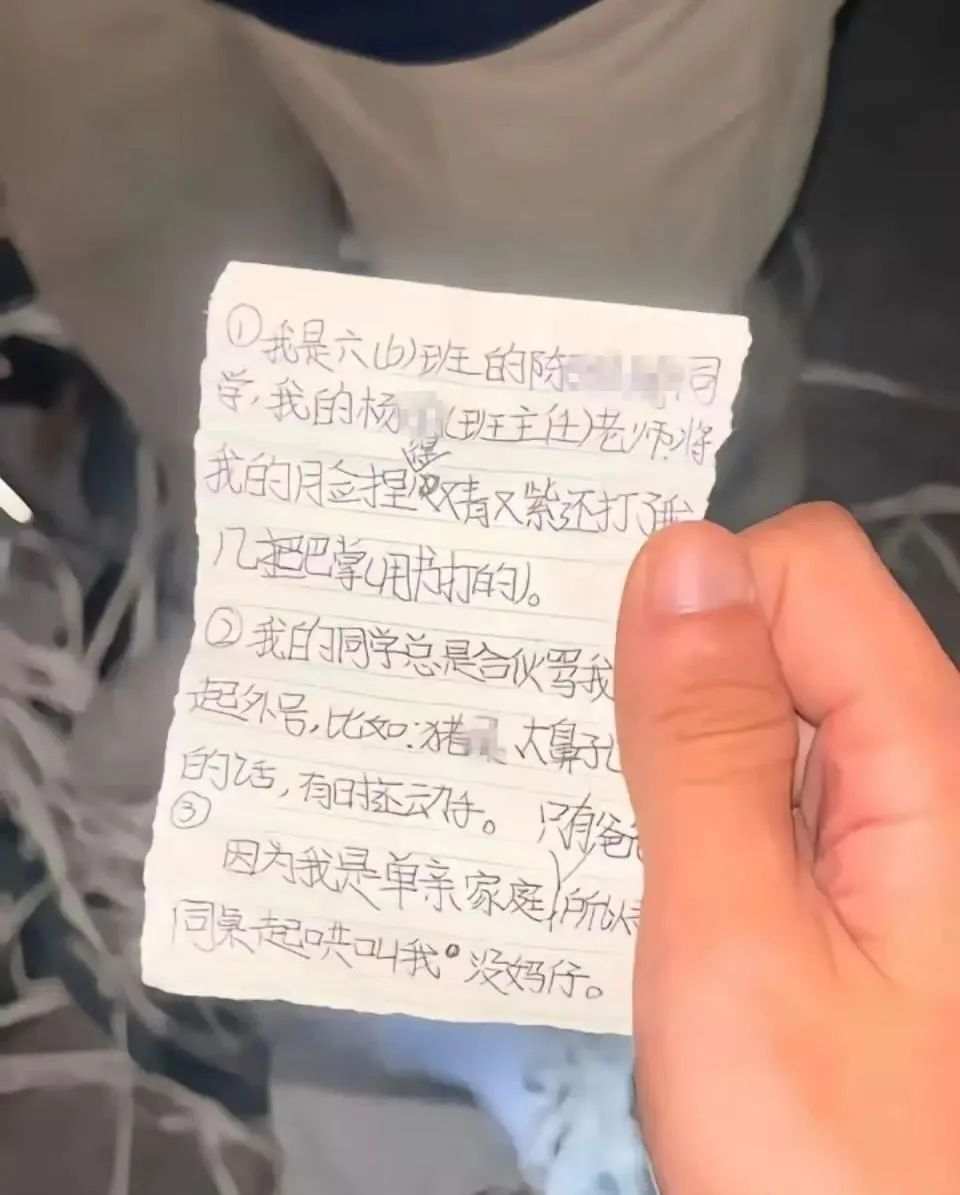 ①我是六(6)班的陈 同
学,我的杨 (班主任)老师.将
我的脸捏得又青又紫还打了我
几把巴掌(用书打的)。
②我的同学总是合伙骂我
起外号,比如:猪 大鼻子
的话,有时还动手。 只有爸
③
因为我是单亲家庭,所以
同桌起哄叫我 没妈仔。